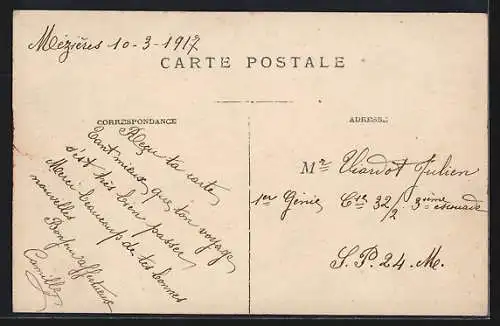 Mézières 10-3-1917
CARTE POSTALE
CORRESPONDANCE
Reçu ta carte
tant mieux que ton voyage
s'est très bien passer
Merci beaucoup de tes bonnes
nouvelles
Bonjour affectueux
Camille
ADRESSE
Mr Viardot Julien
1er Génie Cie 32/2 3ième escouade
S.P. 24. M.